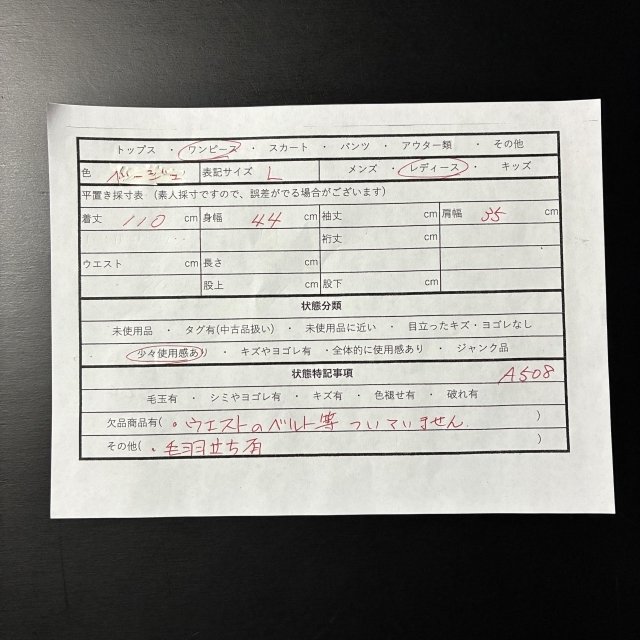 トップス ・ ワンピース ・ スカート ・ パンツ ・ アウター類 ・ その他
色 ベージュ 表記サイズ L メンズ ・ レディース ・ キッズ
平置き採寸表 （素人採寸ですので、誤差がでる場合がございます）
着丈 110 cm 身幅 44 cm 袖丈 cm 肩幅 35 cm
裄丈 cm
ウエスト cm 長さ cm
股上 cm 股下 cm
状態分類
未使用品 ・ タグ有(中古品扱い) ・ 未使用品に近い ・ 目立ったキズ・ヨゴレなし
少々使用感あり ・ キズやヨゴレ有 ・全体的に使用感あり ・ ジャンク品
状態特記事項 A508
毛玉有 ・ シミやヨゴレ有 ・ キズ有 ・ 色褪せ有 ・ 破れ有
欠品商品有( ・ウエストのベルト等 ついていません )
その他( ・毛羽立ち有 )